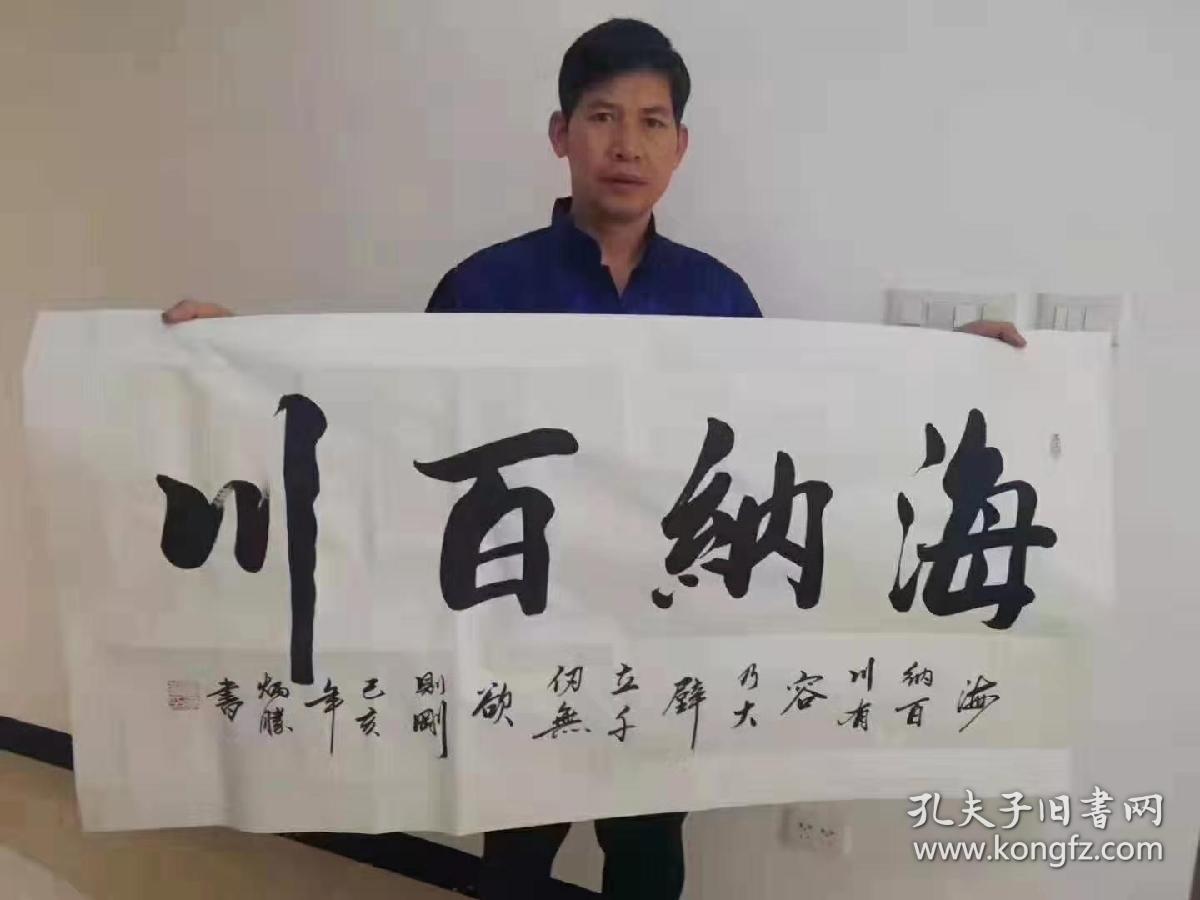 海納百川
海納百川有容乃大壁立千仞無欲則剛己亥年炳勝書
孔夫子旧書网
www.kongfz.com